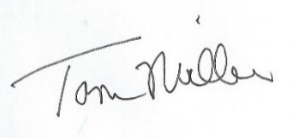 Tom Miller